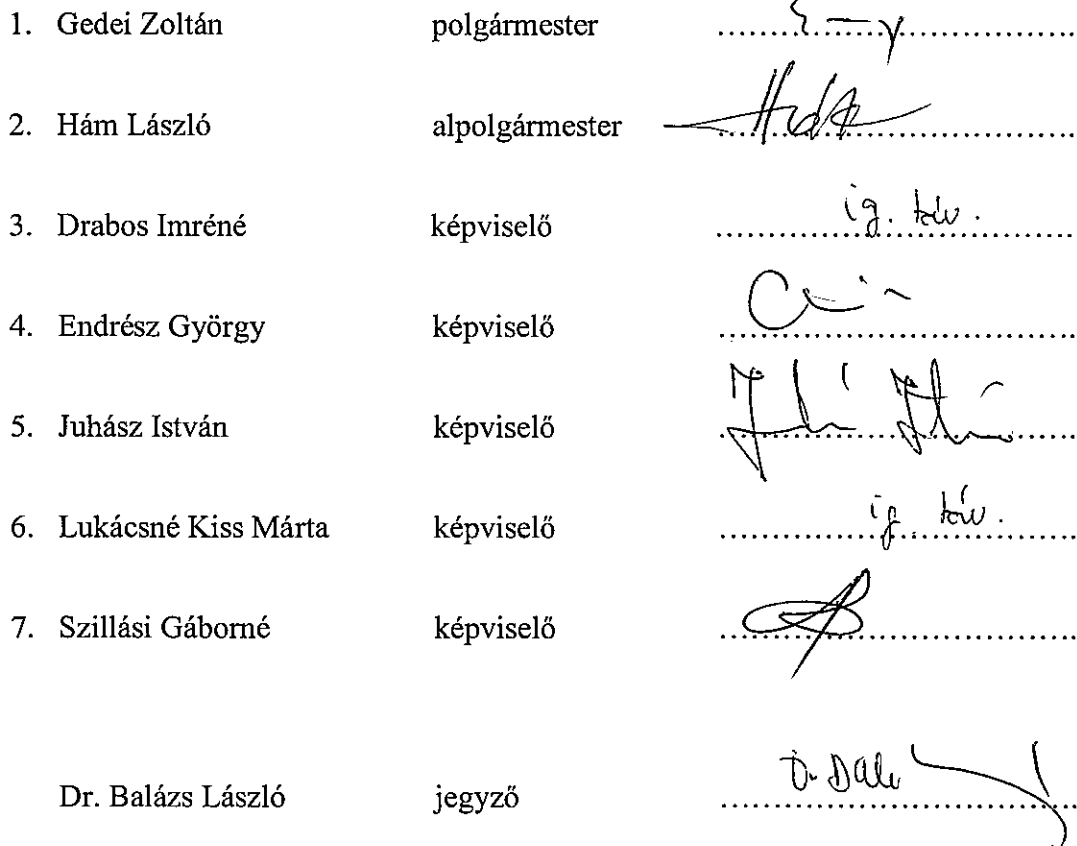 1. Gedei Zoltán polgármester
2. Hám László alpolgármester
3. Drabos Imréné képviselő ig. táv.
4. Endrész György képviselő
5. Juhász István képviselő
6. Lukácsné Kiss Márta képviselő ig. táv.
7. Szillási Gáborné képviselő
Dr. Balázs László jegyző